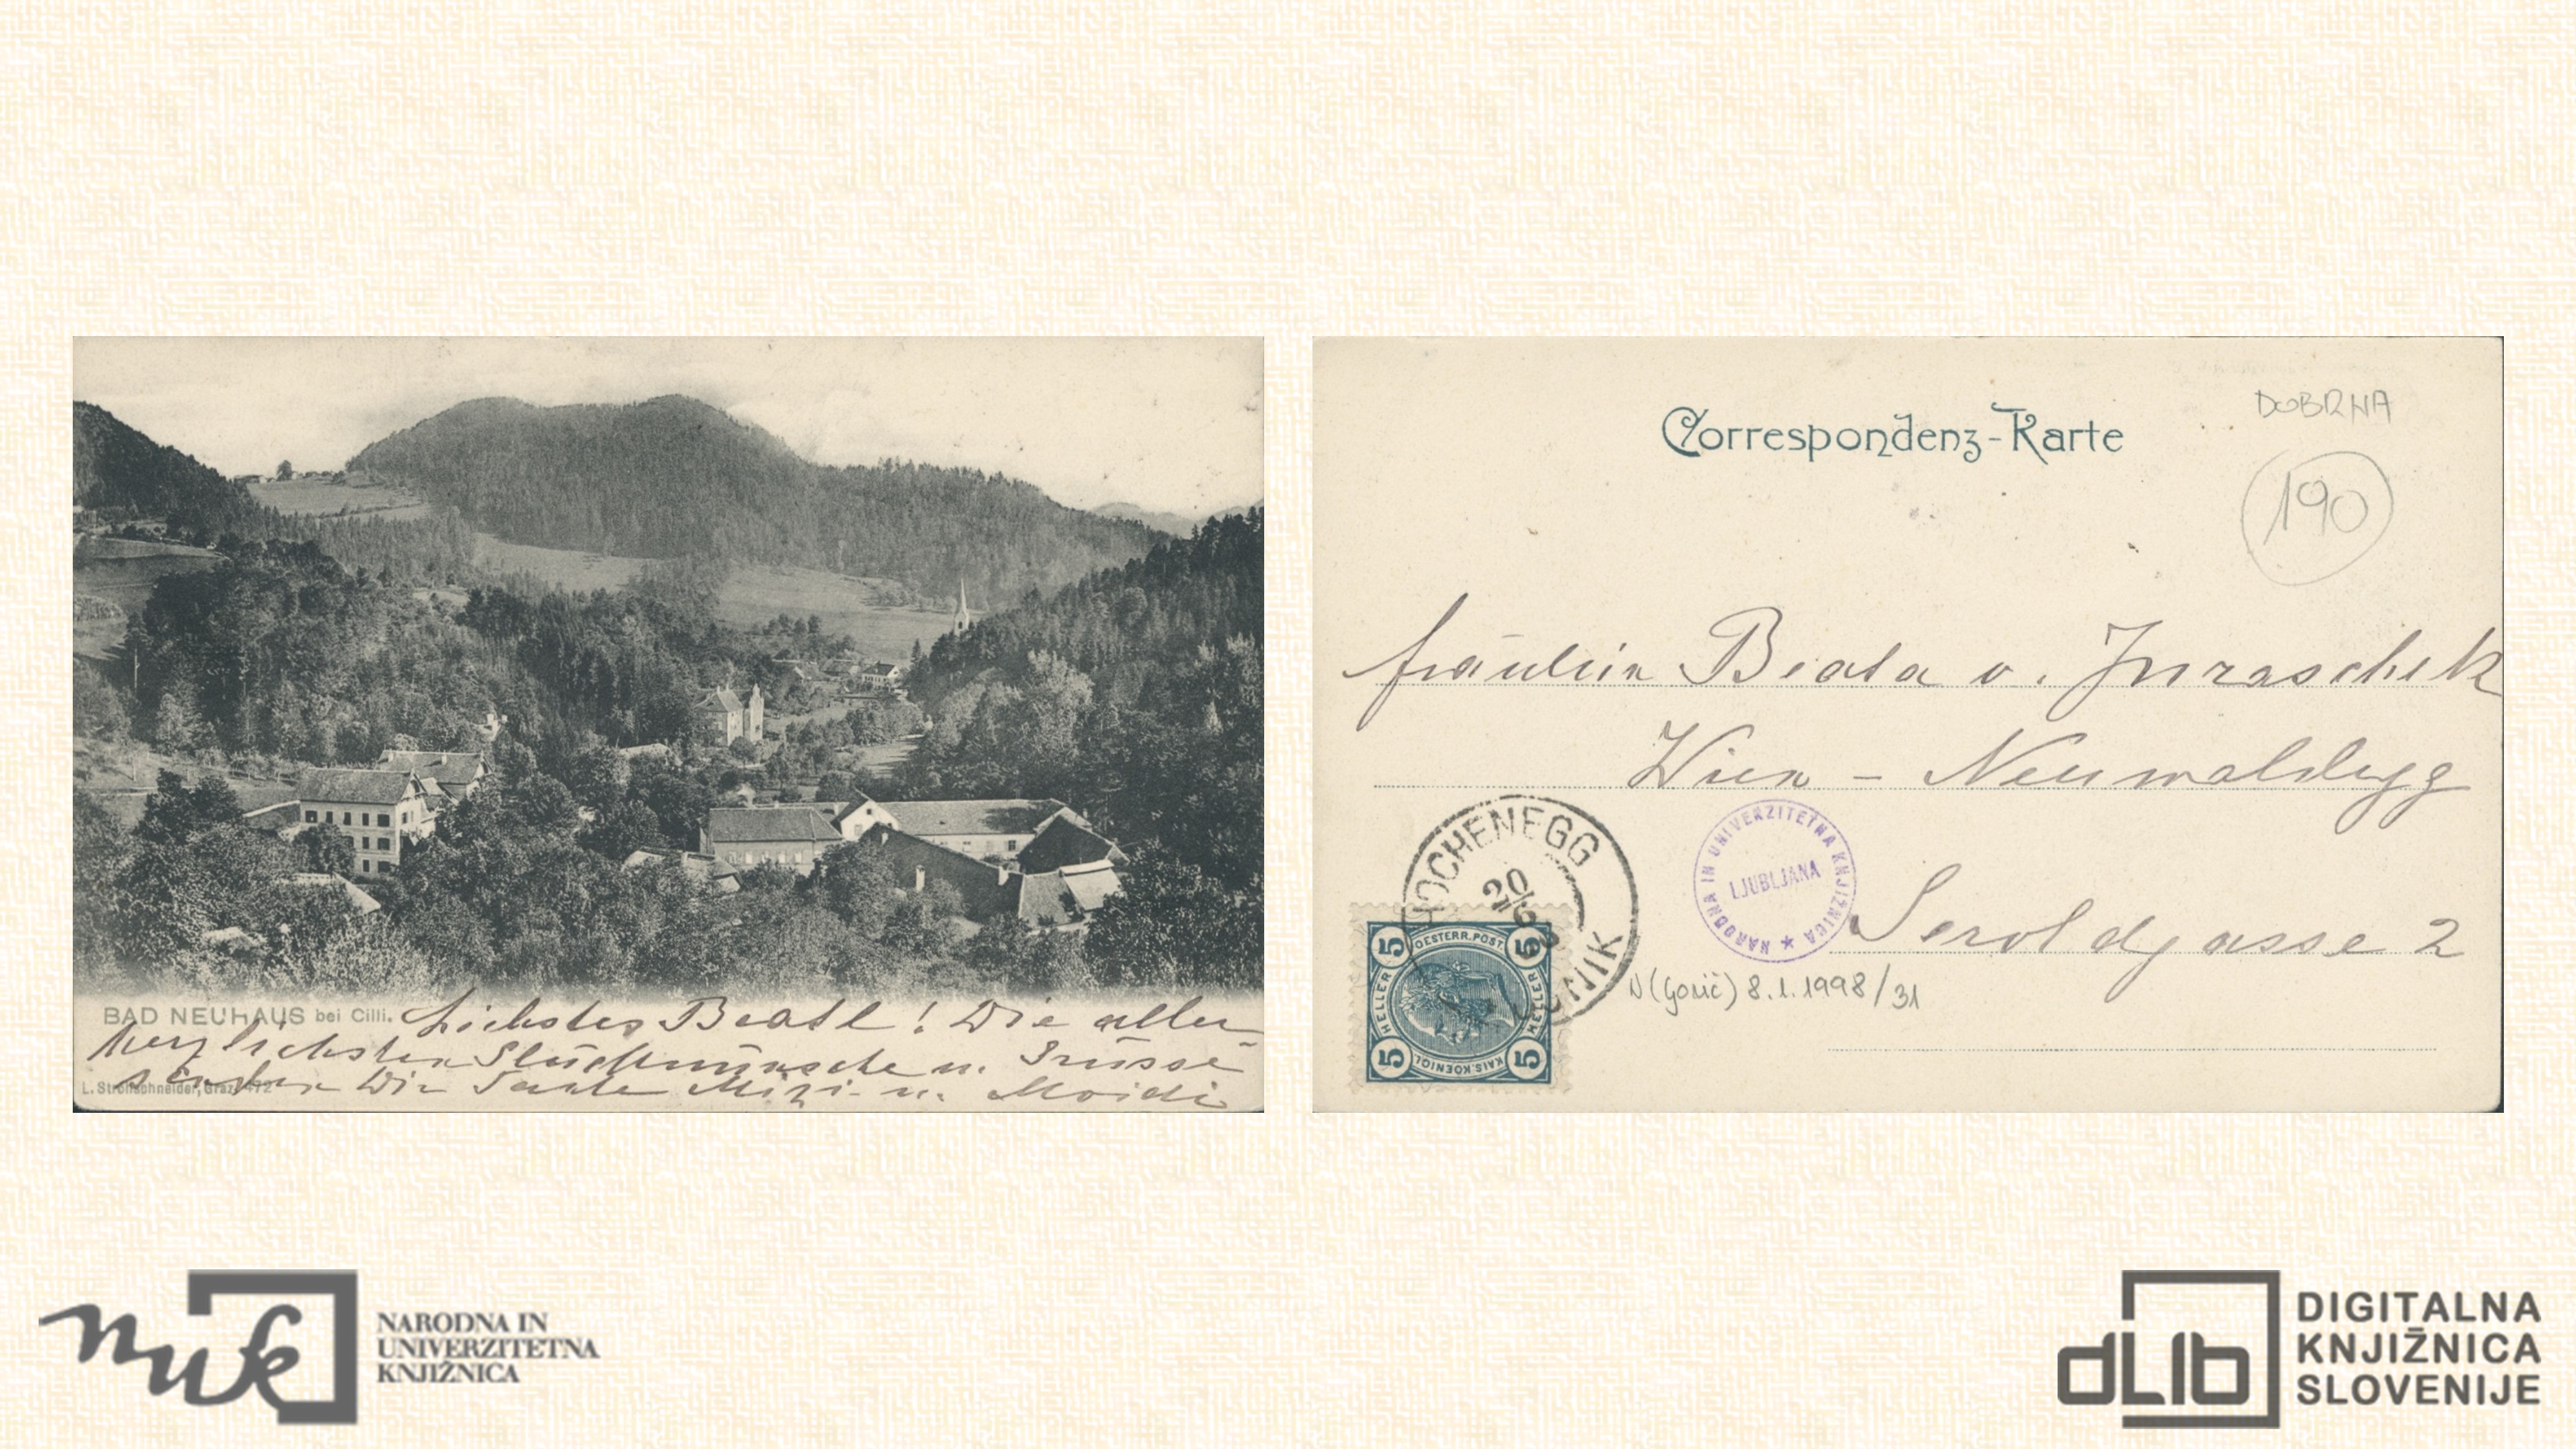 BAD NEUHAUS bei Cilli.
Liebstes Beatl! Die aller
herzlichsten Glückwünsche u. Grüsse
senden Dir Tante Mizi u. Moidi
L. Strohschneider, Graz 472
Correspondenz-Karte
DOBRNA
190
Fräulein Beata v. Juraschek
Wien - Neuwaldegg
Geroldgasse 2
HOCHENEGG
20
NARODNA IN UNIVERZITETNA KNJIŽNICA
LJUBLJANA
N (Gorič) 8.1.1998/31
5 OESTERR. POST. 5
HELLER HELLER
5 KAIS. KOENIGL. 5
NARODNA IN
UNIVERZITETNA
KNJIŽNICA
nuk
dLib
DIGITALNA
KNJIŽNICA
SLOVENIJE